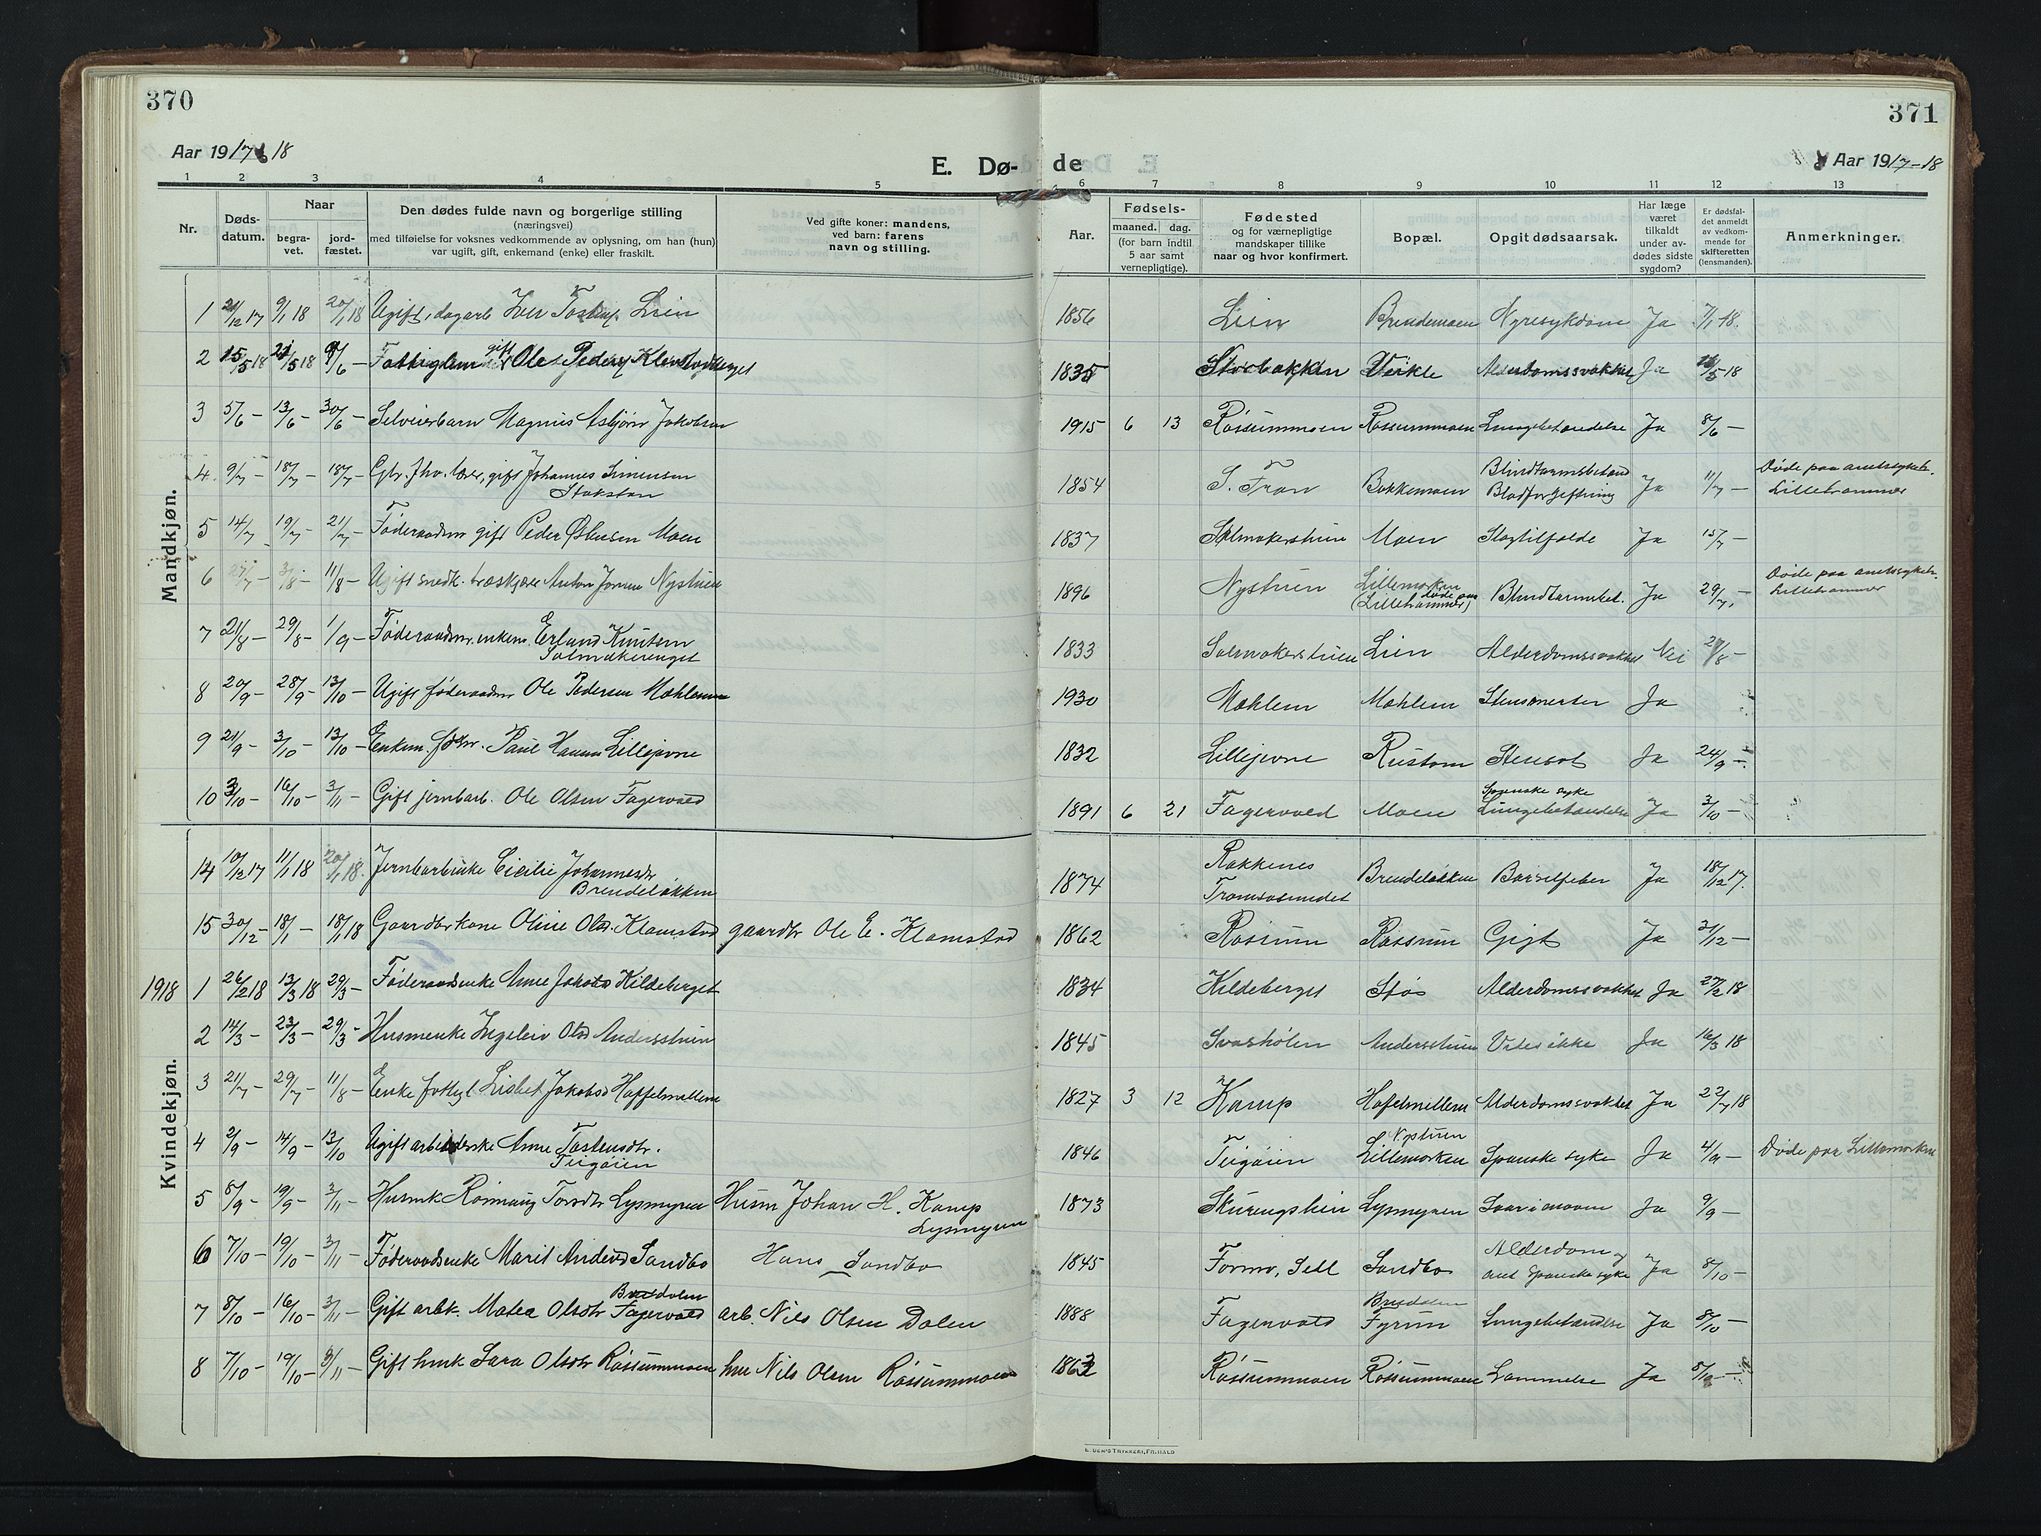 370
371
Aar 1917 18
E. Dø- de
Aar 1917-18
1 2 3 4 5 6 7 8 9 10 11 12 13
Nr.
Døds-
datum.
Naar
begra-
vet.
jord-
fæstet.
Den dødes fulde navn og borgerlige stilling
(næringsvei)
med tilføielse for voksnes vedkommende av oplysning, om han (hun)
var ugift, gift, enkemand (enke) eller fraskilt.
Ved gifte koner: mandens,
ved barn: farens
navn og stilling.
Aar.
Fødsels-
maaned. dag.
(for barn indtil
5 aar samt
vernepligtige).
Fødested
og for værnepligtige
mandskaper tillike
naar og hvor konfirmert.
Bopæl.
Opgit dødsaarsak.
Har læge
været
tilkaldt
under av-
dødes sidste
sygdom?
Er dødsfal-
det anmeldt
av vedkom-
mende for
skifteretten
(lensmanden).
Anmerkninger.
Mandkjøn.
1 21/12 17 9/1 18 20/1 18 Ugift, dagarb Iver Lien 1856 Lien Brendemoen Nyresykdom Ja 7/1 18.
2 15/5 18 21/5 18 9/6 – gift Ole Peders 1835 Storbakken Veikle Alderdomssvakhet Ja 5 18
3 5/6 – 13/6 – 30/6 – Selveierbarn Magnus Asbjørn Jakobsen 1915 6 13 Røssummoen Røssummoen Lungebetændelse Ja 8/6 –
4. 9/7 – 18/7 – 18/7 – gift Johannes Simensen
Stokstan 1854 S. Fron Bakkemoen Blindtarmsbetænd
Blodforgiftning Ja 11/7 – Døde paa amtssykeh.
Lillehammer
5 14/7 19/7 – 21/7 – Føderaadsm gift Peder Østensen Moen 1837 Salmakerstuen Moen Slagtilfælde Ja 15/7 –
6 27/7 – 3/8 – 11/8 – Ugift snedk. træskjærer Anton Nystuen 1896 Nystuen Lillemorken
(døde paa
Lillehammer) Blindtarmsbet. Ja 29/7 – Døde paa amtssykeh.
Lillehammer
7 21/8 – 29/8 – 1/9 – Føderaadsm. enkem. Erland Knutsen
Salmakerenget 1833 Salmakerstuen Lien Alderdomssvakhet Nei 28/8 –
8 20/9 – 28/9 – 13/10 – Ugift føderaadsm Ole Pedersen Mæhlum 1930 Mæhlem Mæhlem Stensmerter Ja
9 21/9 – 3/10 – 13/10 – Enkem. Paul Hansen Lillejevne 1832 Lillejevne Rustom Stensot Ja 24/9 –
10 3/10 – 16/10 – 3/11 – Gift jernbarb. Ole Olsen Fagervold 1891 6 21 Fagervold Moen Spanske syke
Lungebetændelse Ja 3/10 –
Kvindekjøn.
14 10/12 17 11/1 18 20/1 18. Cicilie Johannesdr
Brendeløkken 1874 Rakkenes
Tromsøsundet Brendeløkken Barselfeber Ja 18/12 17.
15 30/12 – 18/1 – 18/1 18 Gaardbr kone Oline Olsd. Klomstad gaardbr Ole E. Klomstad 1862 Røssum Røssum Gigt Ja 31/12 –
1918 1 26/2 18 13/3 18 29/3 – Føderaadsenke Anne Jakobsd Kildeberget 1834 Kildeberget Støs Alderdomssvakhet Ja 27/2 18
2 14/3 – 23/3 – 29/3 – Husmenke Ingeleiv Olsd Andersstuen 1845 Svashølen Andersstuen Vides ikke Ja 16/3 18
3 21/7 – 29/7 – 11/8 – Enke Lisbet Jakobsd Haffelmellem 1827 3 12 Kamp Hafelmellem Alderdomssvakhet Ja 22/7 18
4 2/9 – 14/9 – 13/10 Ugift Anne Tostensdtr.
Teigøien 1846 Teigøien Nystuen
Lillemorken Spanske syke Ja 4/9 – Døde paa Lillemorken
5 8/9 – 19/9 – 3/11 – Husmk Rønnaug Torsdtr Lysmyren Husm Johan H. Kamp
Lysmyren 1873 Lysmyren Ja 9/9 –
6 7/10 – 19/10 – 3/11 – Føderaadsenke Marit Andersd Sandbo Hans Sandbo 1845 Formo, Sell Sandbo Alderdom og
ant Spanske syke Ja 8/10 –
7 8/10 – 16/10 – 3/11 – Gift arbk. Matea Olsdtr Bredalen
Fagervold arb. Nils Olsen Dalen 1888 Fagervold Bredalen
Fyrun Lungebetændelse Ja 8/10 –
8 7/10 – 19/10 – 3/11 – Gift hmk Sara Olsdtr Røssummoen hm Nils Olsen Røssummoen 1863 Røssummoen Røssummoen Lammelse Ja 8/10 –